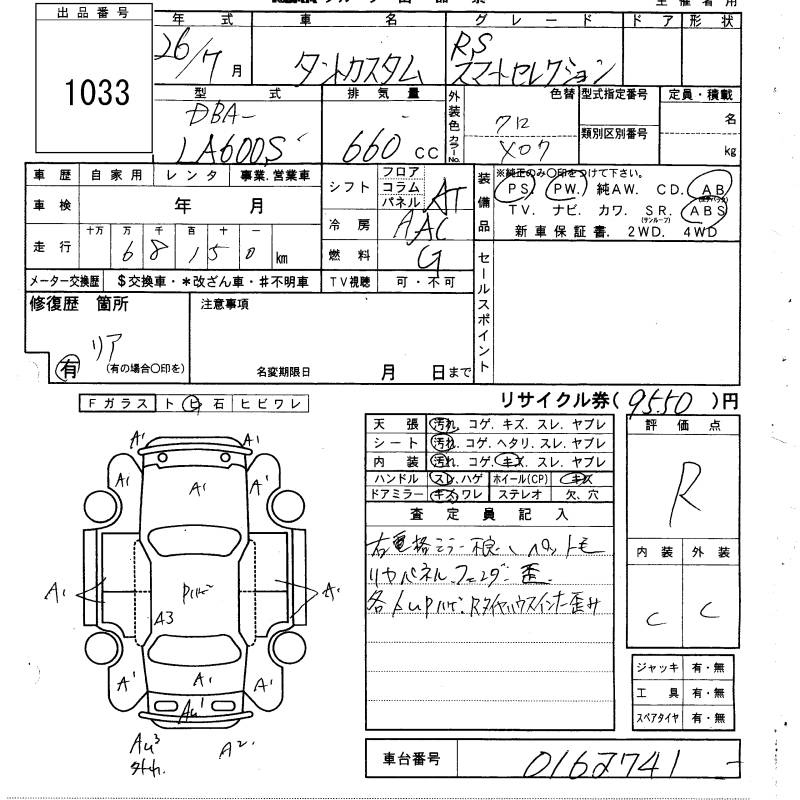 出品番号
1033
年式 車名 グレード ドア 形状
26/7月 タントカスタム RS スマートセレクション
型式 排気量 外装色 カラーNo. 色替 型式指定番号 定員・積載
DBA-
LA600S 660cc クロ X07 類別区別番号 名
kg
車歴 自家用 レンタ 事業.営業車
車検 年 月
走行 十万 万 千 百 十 一
6 8 1 5 0 km
メーター交換歴 $交換車・*改ざん車・#不明車
シフト フロア コラム パネル AT
冷房 AAC
燃料 G
TV視聴 可・不可
装備品 ※純正のみ〇印をつけて下さい。
PS. PW. 純AW. CD. AB
TV. ナビ. カワ. SR. (サンルーフ) ABS
新車保証書. 2WD. 4WD
セールスポイント
修復歴 箇所 注意事項
リア
有 (有の場合〇印を)
名変期限日 月 日まで
Fガラス ト ヒ 石 ヒビワレ
リサイクル券( 9550 )円
天張 汚れ. コゲ. キズ. スレ. ヤブレ
シート 汚れ. コゲ. ヘタリ. スレ. ヤブレ
内装 汚れ. コゲ. キズ. スレ. ヤブレ
ハンドル スレ.ハゲ ホイール(CP) キズ
ドアミラー キズ.ワレ ステレオ 欠.穴
評価点
R
内装 外装
C C
査定員記入
右電格ミラー不良.
リヤパネル.フェンダー歪.
各 Rタイヤハウスインナー歪み
A1 A1
A1
A1 A1
A1 A1
A3
A1 A1 A1
AU1
AU3 A2
ジャッキ 有・無
工具 有・無
スペアタイヤ 有・無
車台番号 0162741